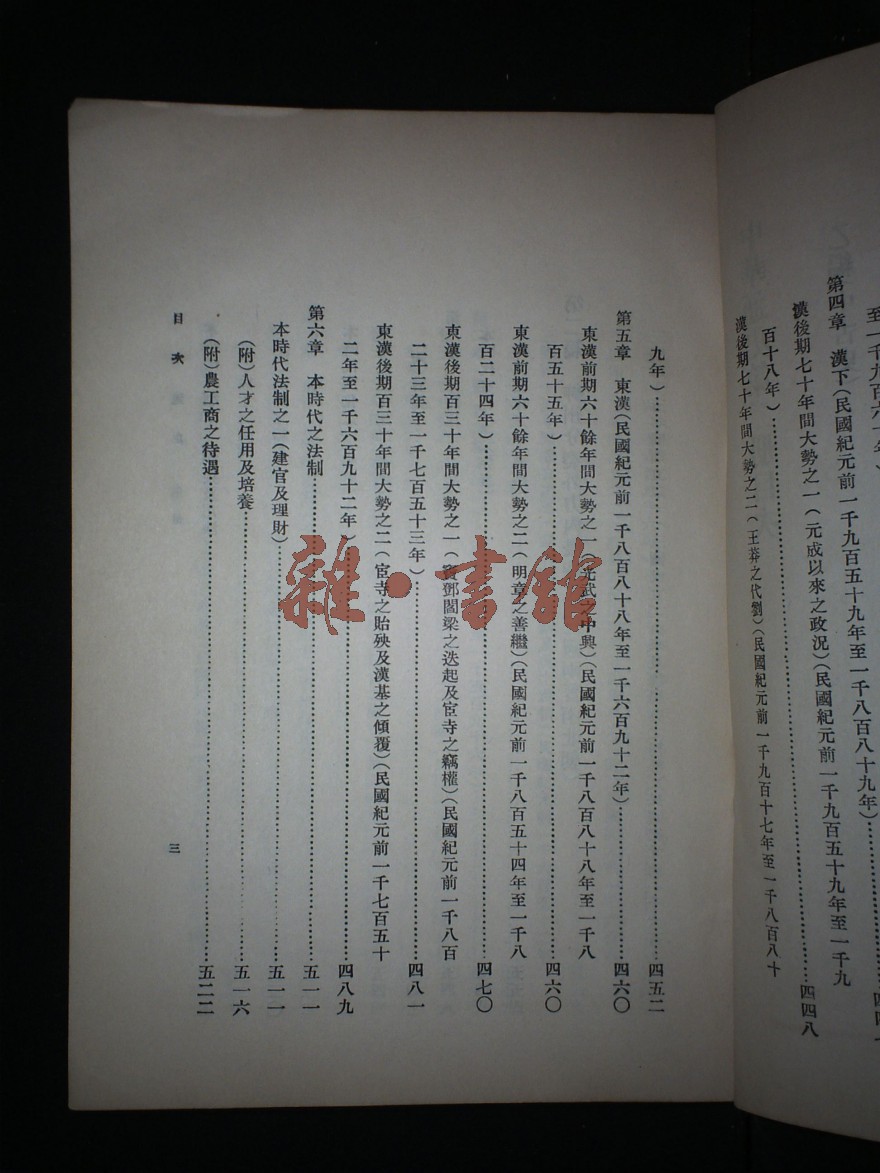 至一千九百六十年）
第四章　漢下（民國紀元前一千九百五十九年至一千八百八十九年）
漢後期七十年間大勢之一（元成以來之政況）（民國紀元前一千九百五十九年至一千九
百十八年）……四四八
漢後期七十年間大勢之二（王莽之代劉）（民國紀元前一千九百十七年至一千八百八十
九年）……四五二
第五章　東漢（民國紀元前一千八百八十八年至一千六百九十二年）……四六〇
東漢前期六十餘年間大勢之一（光武之中興）（民國紀元前一千八百八十八年至一千八
百五十五年）……四六〇
東漢前期六十餘年間大勢之二（明章之善繼）（民國紀元前一千八百五十四年至一千八
百二十四年）……四七〇
東漢後期百三十年間大勢之一（竇鄧閻梁之迭起及宦寺之竊權）（民國紀元前一千八百
二十三年至一千七百五十三年）……四八一
東漢後期百三十年間大勢之二（宦寺之貽殃及漢基之傾覆）（民國紀元前一千七百五十
二年至一千六百九十二年）……四八九
第六章　本時代之法制……五一一
本時代法制之一（建官及理財）……五一一
（附）人才之任用及培養……五一六
（附）農工商之待遇……五二二
目次
三
雜·書館